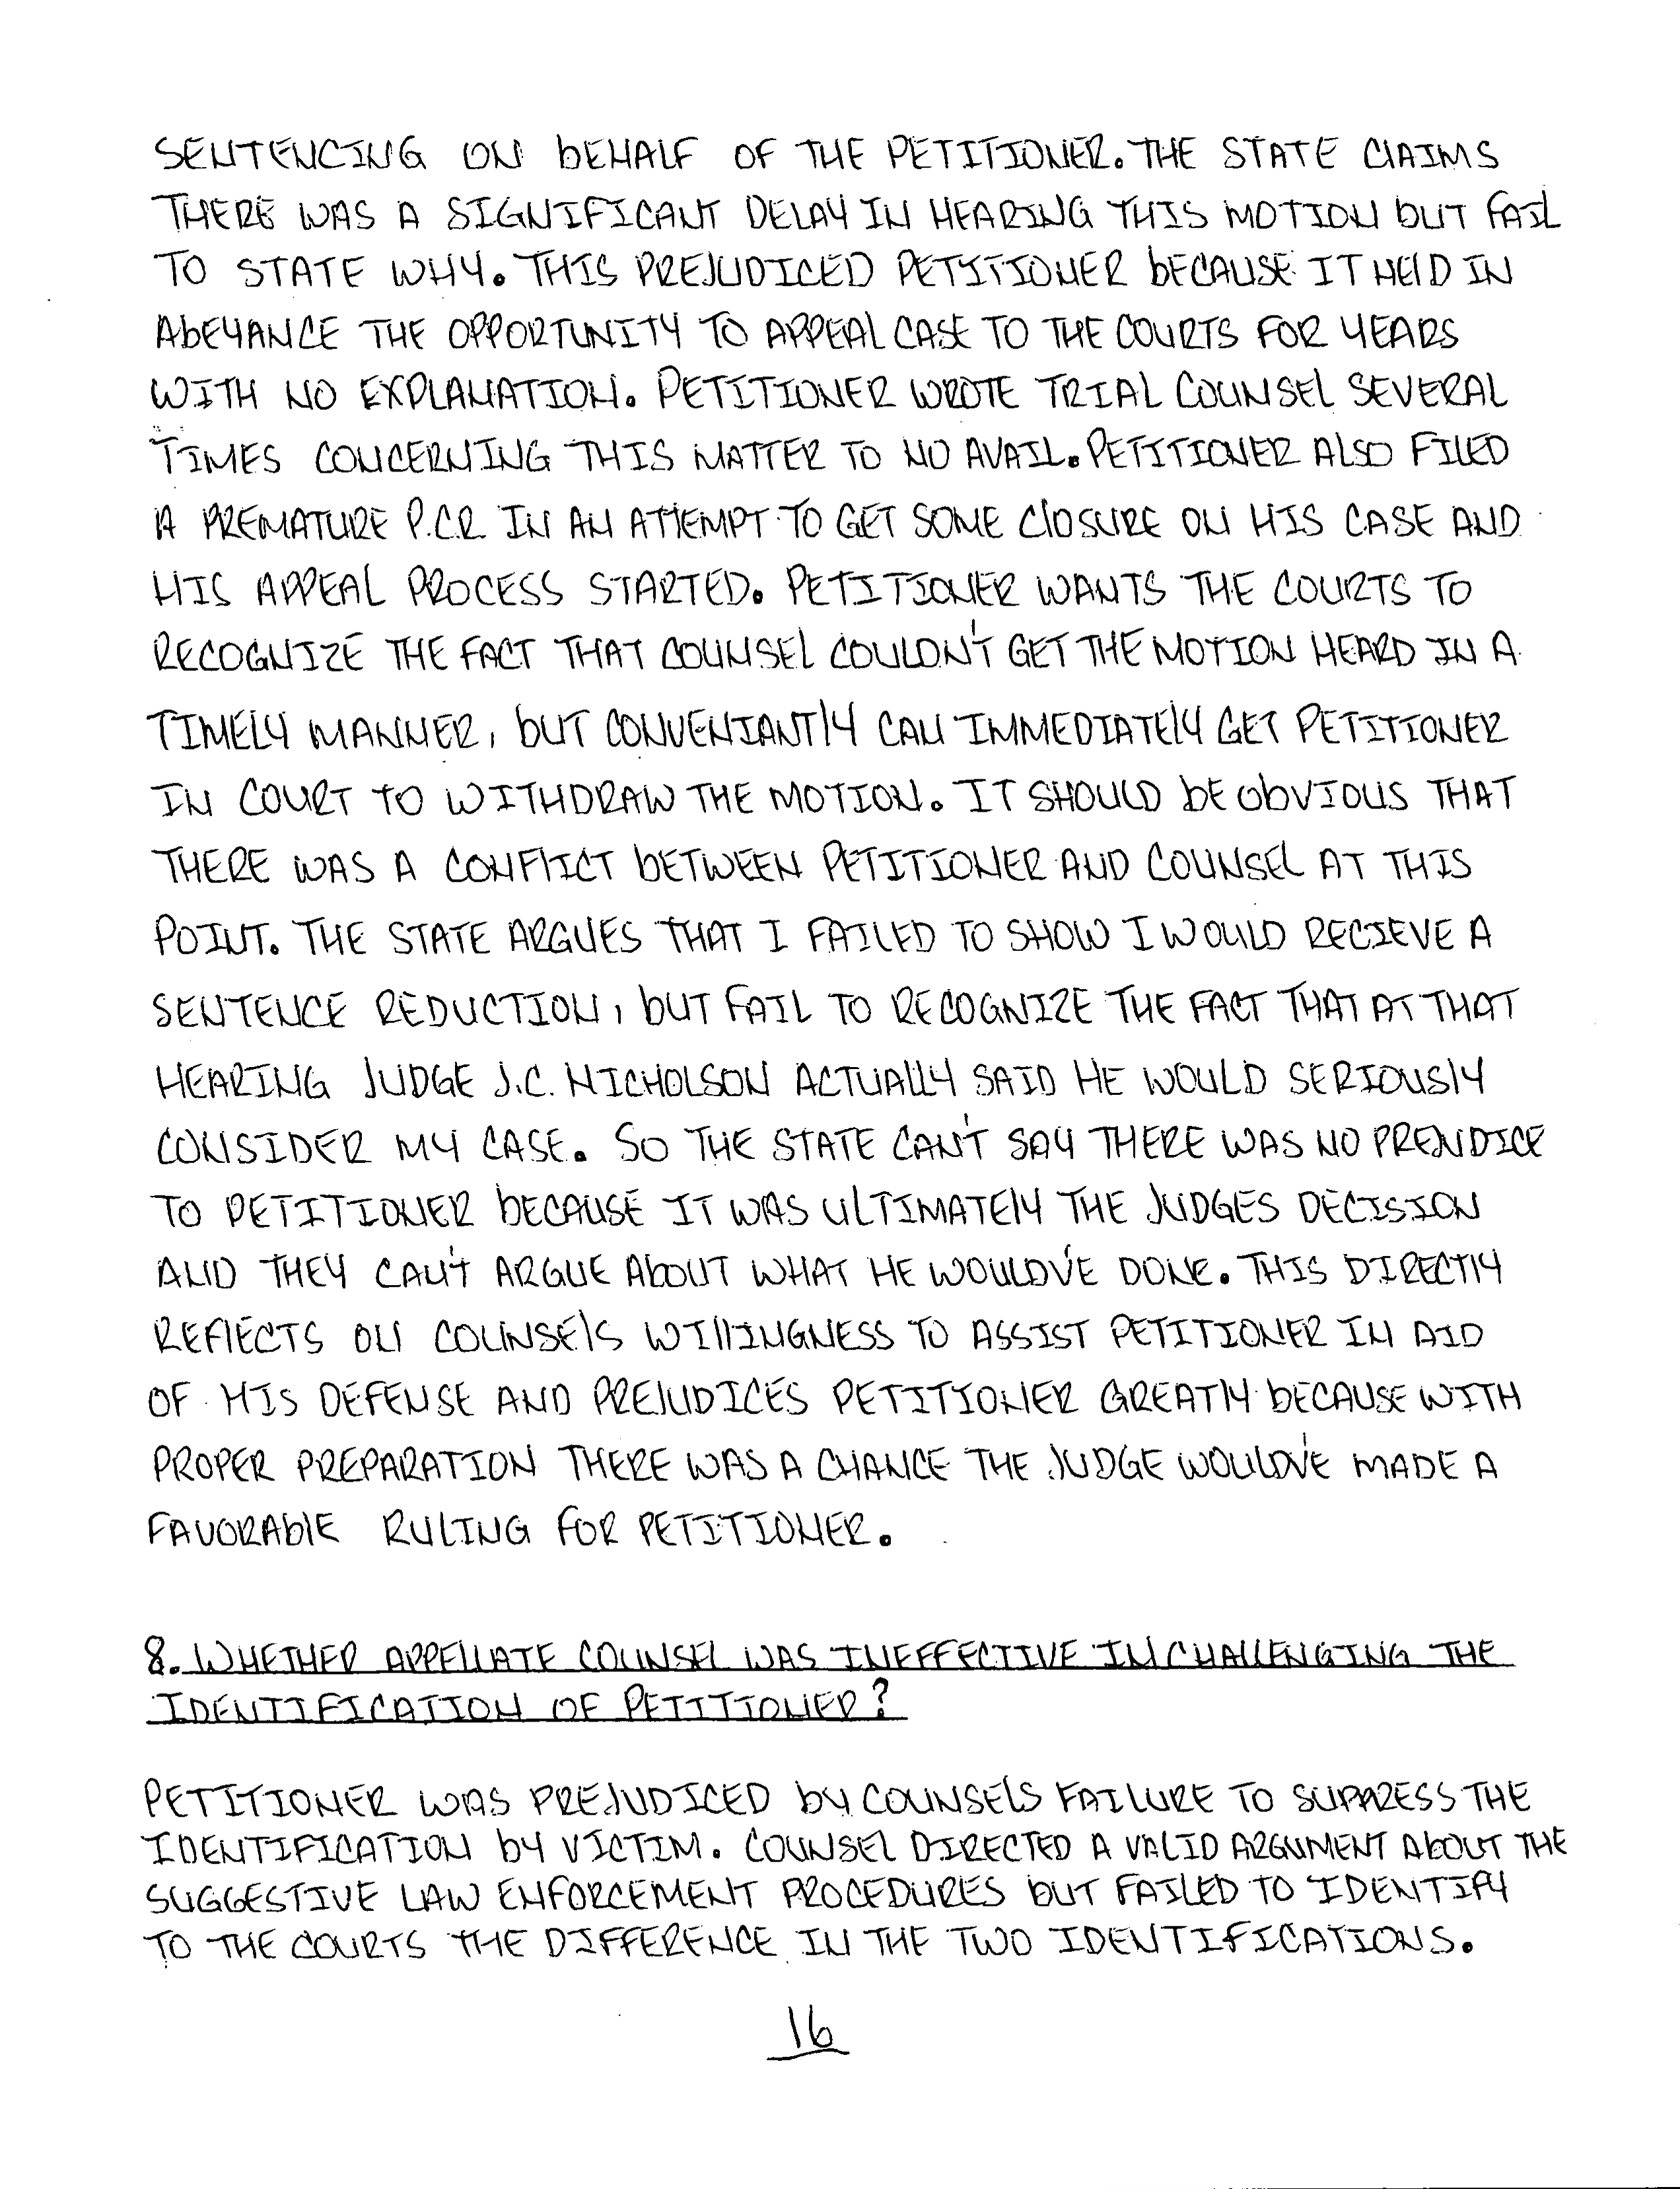 SENTENCING ON bEHALF OF THE PETITIONER. THE STATE CLAIMS
THERE WAS A SIGNIFICANT DELAY IN HEARING THIS MOTION bUT FAIL
TO STATE WHY. THIS PREJUDICED PETITIONER bECAUSE IT HELD IN
AbEYANCE THE OPPORTUNITY TO APPEAL CASE TO THE COURTS FOR YEARS
WITH NO EXPLANATION. PETITIONER WROTE TRIAL COUNSEL SEVERAL
TIMES CONCERNING THIS MATTER TO NO AVAIL. PETITIONER ALSO FILED
A PREMATURE P.C.R. IN AN ATTEMPT TO GET SOME CLOSURE ON HIS CASE AND
HIS APPEAL PROCESS STARTED. PETITIONER WANTS THE COURTS TO
RECOGNIZE THE FACT THAT COUNSEL COULDN'T GET THE MOTION HEARD IN A
TIMELY MANNER, bUT CONVENIANTLY CAN IMMEDIATELY GET PETITIONER
IN COURT TO WITHDRAW THE MOTION. IT SHOULD bE ObVIOUS THAT
THERE WAS A CONFLICT bETWEEN PETITIONER AND COUNSEL AT THIS
POINT. THE STATE ARGUES THAT I FAILED TO SHOW I WOULD RECIEVE A
SENTENCE REDUCTION, bUT FAIL TO RECOGNIZE THE FACT THAT AT THAT
HEARING JUDGE J.C. NICHOLSON ACTUALLY SAID HE WOULD SERIOUSLY
CONSIDER MY CASE. SO THE STATE CAN'T SAY THERE WAS NO PREJUDICE
TO PETITIONER bECAUSE IT WAS ULTIMATELY THE JUDGES DECISION
AND THEY CAN'T ARGUE AbOUT WHAT HE WOULD'VE DONE. THIS DIRECTLY
REFLECTS ON COUNSELS WILLINGNESS TO ASSIST PETITIONER IN AID
OF HIS DEFENSE AND PREJUDICES PETITIONER GREATLY bECAUSE WITH
PROPER PREPARATION THERE WAS A CHANCE THE JUDGE WOULD'VE MADE A
FAVORAbLE RULING FOR PETITIONER.
8. WHETHER APPELLATE COUNSEL WAS INEFFECTIVE IN CHALLENGING THE
IDENTIFICATION OF PETITIONER?
PETITIONER WAS PREJUDICED bY COUNSELS FAILURE TO SUPPRESS THE
IDENTIFICATION bY VICTIM. COUNSEL DIRECTED A VALID ARGUMENT AbOUT THE
SUGGESTIVE LAW ENFORCEMENT PROCEDURES bUT FAILED TO IDENTIFY
TO THE COURTS THE DIFFERENCE IN THE TWO IDENTIFICATIONS.
16